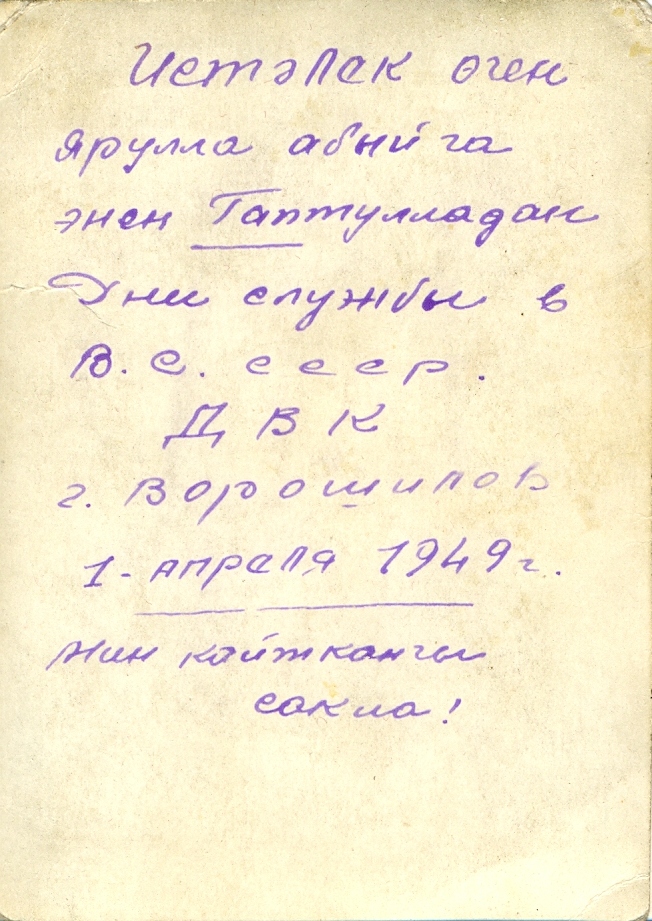 Истәлек өчен
Ярулла абый га
энен Гаптулладан
Дни службы в
В. С. СССР.
ДВК
г. Ворошилов
1-апреля 1949 г.
Мин кайтканчы
сакла!